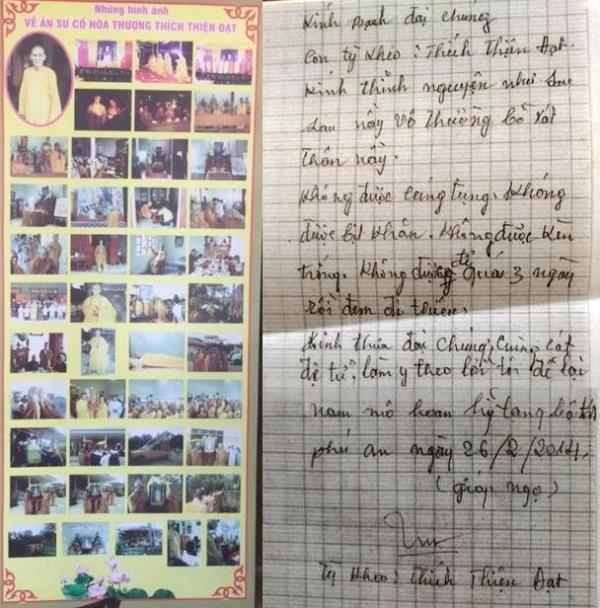 Những hình ảnh
VỀ ÂN SƯ CỐ HÒA THƯỢNG THÍCH THIỆN ĐẠT
Kính bạch đại chúng
Con tỳ kheo : Thích Thiện Đạt.
Kính thỉnh nguyện như sau
sau nầy vô thường bỏ xát
thân nầy.
Không được cúng tụng, không
được bịt khăn. Không được kèn
trống. Không được để quá 3 ngày
rồi đem đi thiêu.
Kính thưa đại chúng, cùng các
đệ tử, làm y theo lời tôi để lại
nam mô hoan hỷ tạng bồ tát
phú an ngày 26/2/2014.
(giáp ngọ)
Tỳ kheo : Thích Thiện Đạt